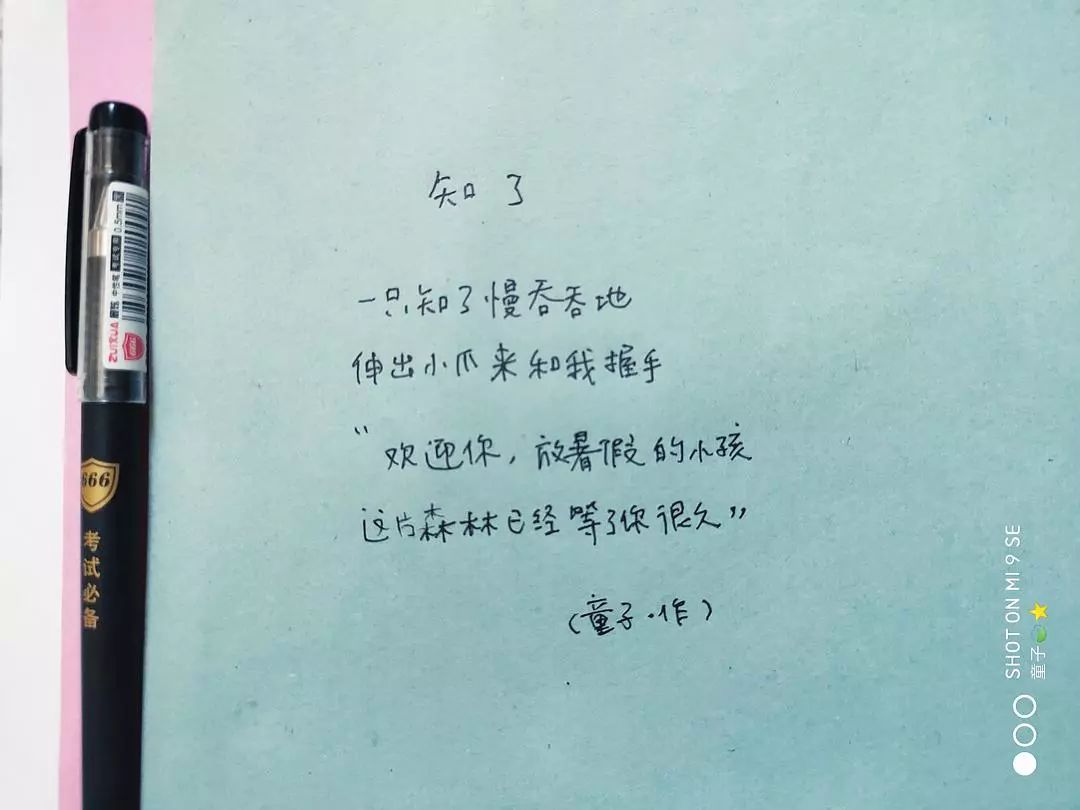 知了
一只知了慢吞吞地
伸出小爪来和我握手
“欢迎你,放暑假的小孩
这片森林已经等了你很久”
(童子·作)
666
考试必备
0.5mm
666
SHOT ON MI 9 SE
童子